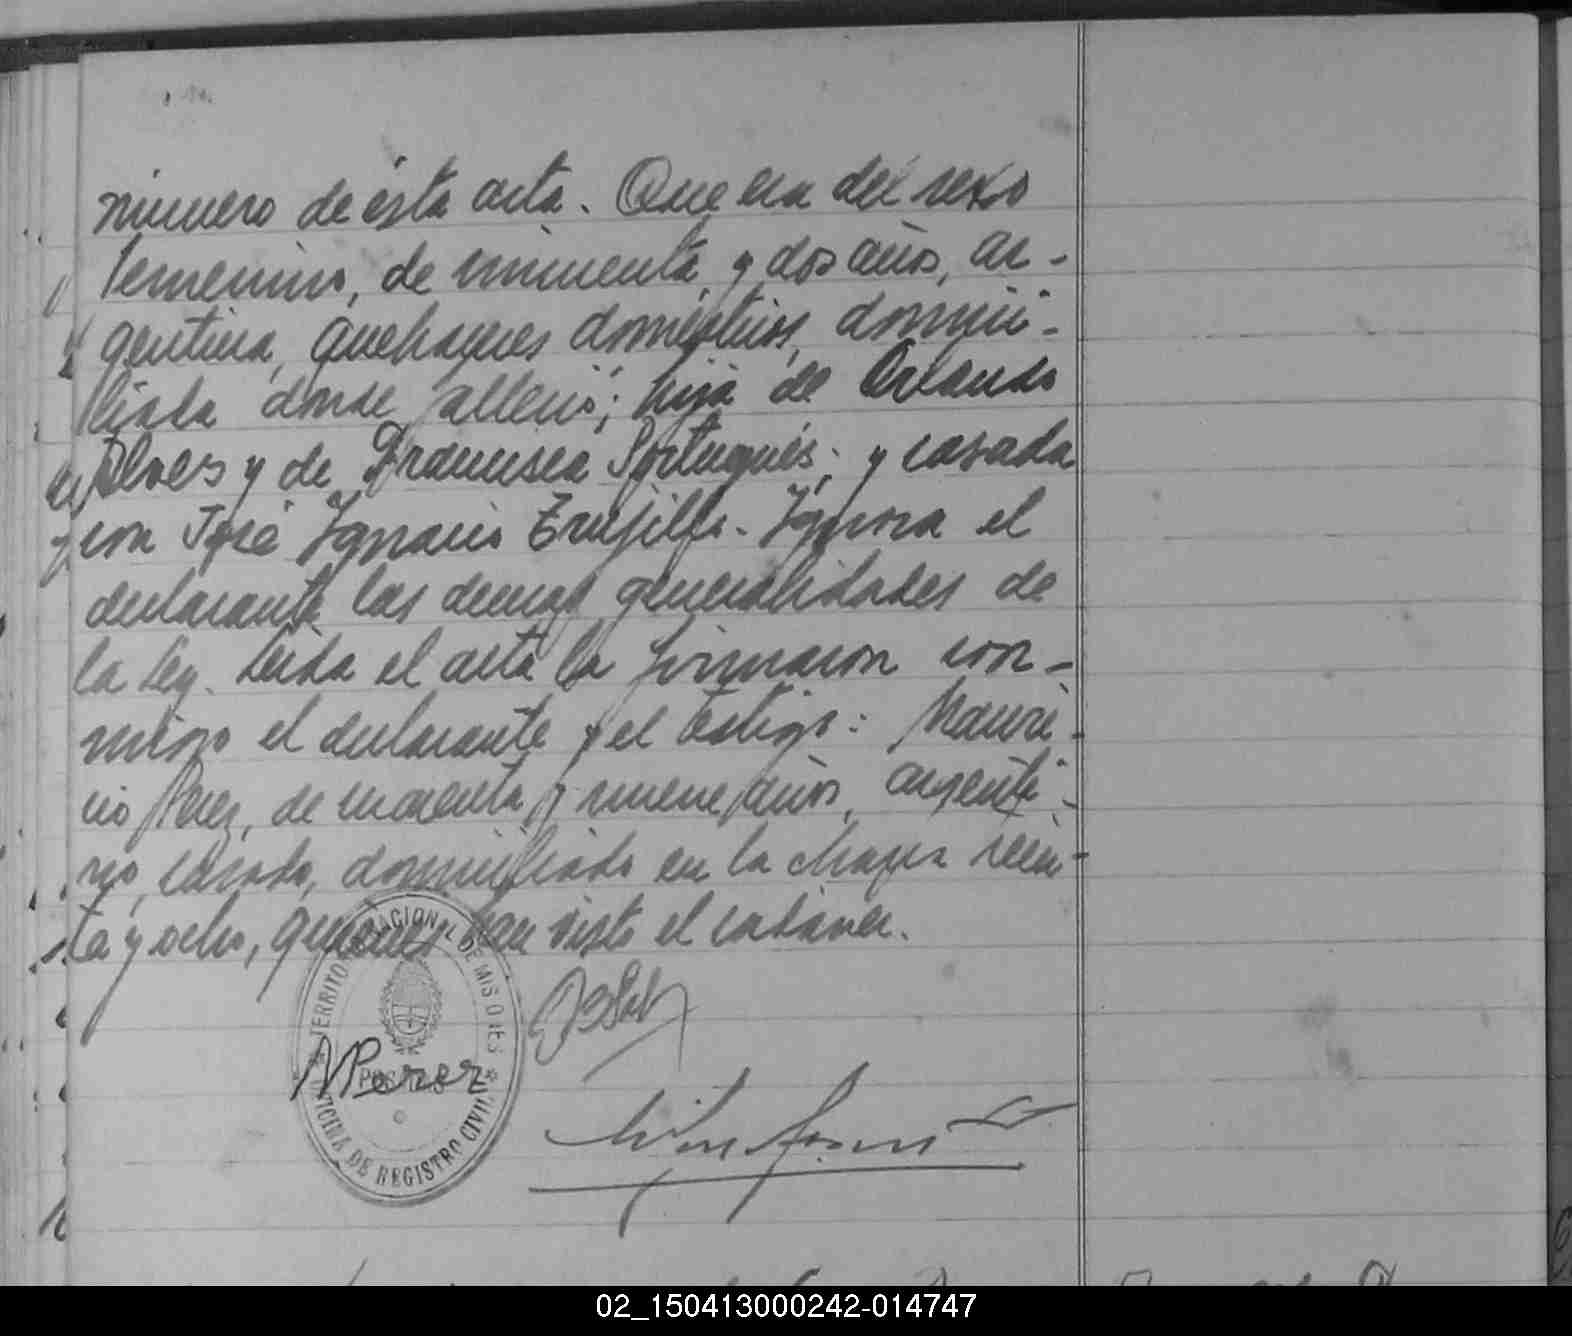 número de ésta acta. Que era del sexo
femenino, de cincuenta y dos años, ar-
gentina, quehaceres domésticos, domici-
liada donde falleció; hija de Orlando
Alves y de Francisca Portugués; y casada
con José Ignacio Trujillo. Ignora el
declarante las demas generalidades de
la Ley. Leida el acta la firmaron con-
migo el declarante y el testigo: Mauri-
cio Perez, de cuarenta y nueve años, argenti-
no, casado, domiciliado en la chacra
ta y ocho, quienes han visto el cadáver.
TERRITORIO NACIONAL DE MISIONES
POSADAS
OFICINA DE REGISTRO CIVIL
MPerez
02_150413000242-014747